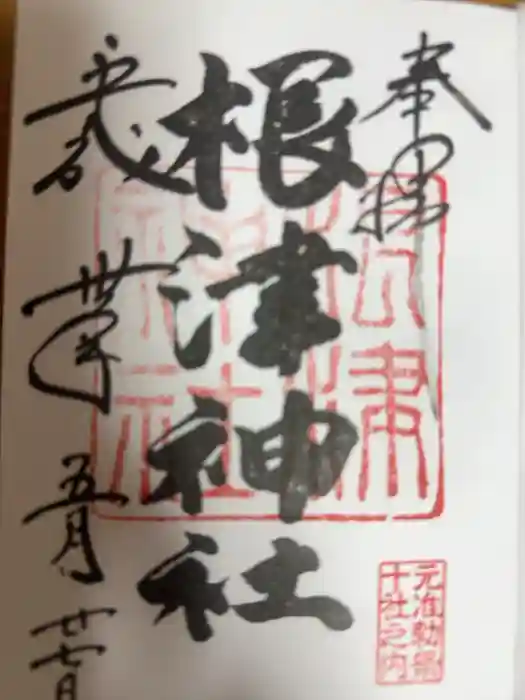 奉拝
根津神社
平成卅年五月廿七日
根津
神社
元准勅祭
十社之内